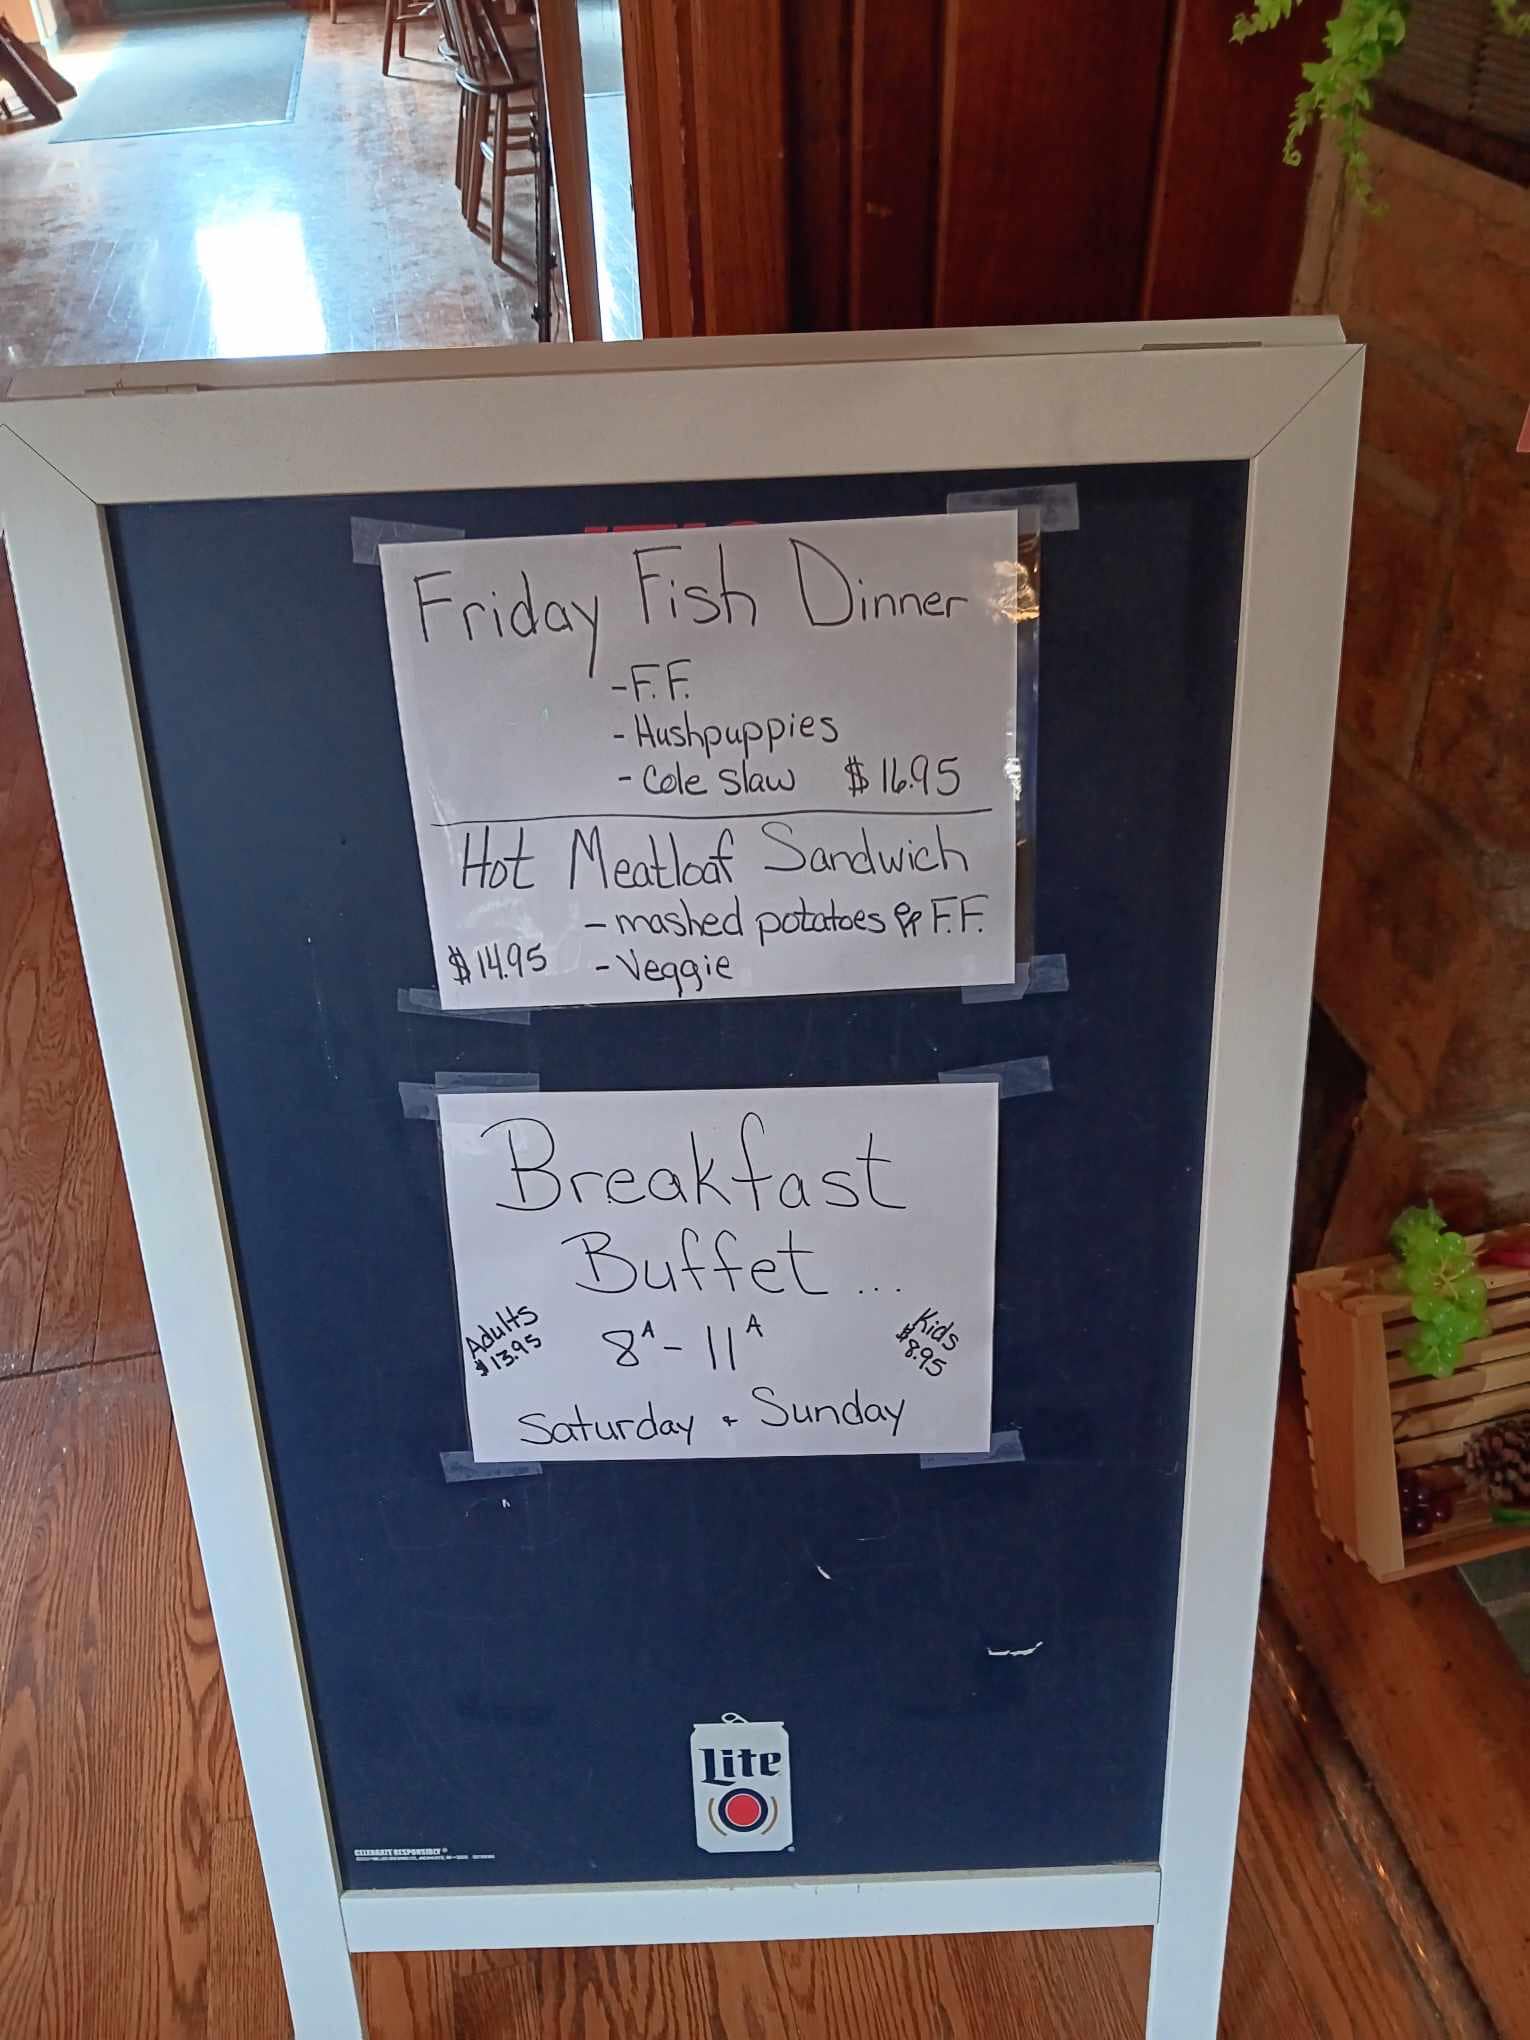 Friday Fish Dinner
- F.F.
- Hushpuppies
- Cole slaw $16.95
Hot Meatloaf Sandwich
- mashed potatoes or F.F.
$14.95 - Veggie
Breakfast
Buffet...
Adults
$13.95
8A - 11A
Kids
$8.95
Saturday + Sunday
Lite
CELEBRATE RESPONSIBLY®